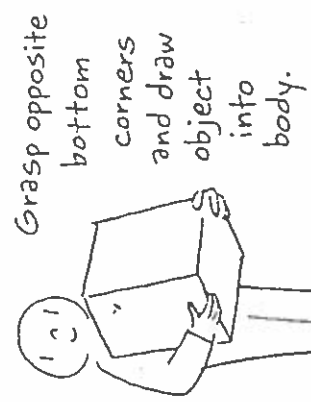 Grasp opposite
bottom
corners
and draw
object
into
body.